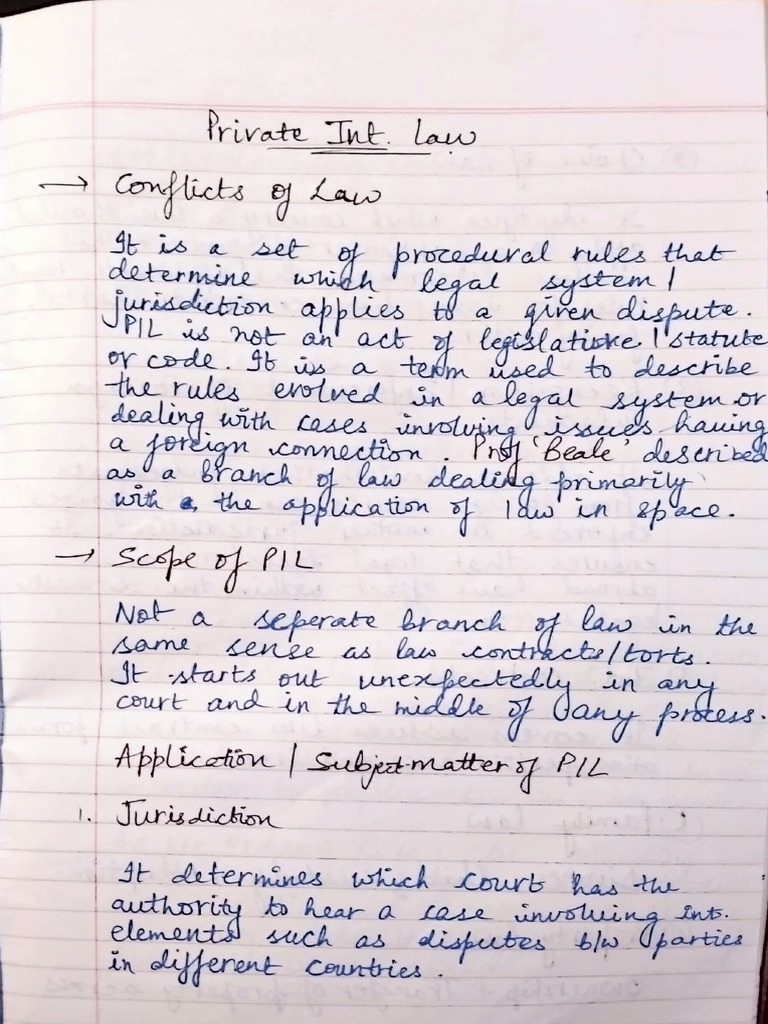 Private Int. Law
→ Conflicts of Law
It is a set of procedural rules that
determine which legal system /
jurisdiction applies to a given dispute.
PIL is not an act of legislature / statute
or code. It is a term used to describe
the rules evolved in a legal system or
dealing with cases involving issues having
a foreign connection. Prof 'Beale' described
as a branch of law dealing primarily
with the application of law in space.
→ Scope of PIL
Not a seperate branch of law in the
same sense as law contracts/torts.
It starts out unexpectedly in any
court and in the middle of any process.
Application / Subject-matter of PIL
1. Jurisdiction
It determines which court has the
authority to hear a case involving int.
elements such as disputes b/w parties
in different countries.